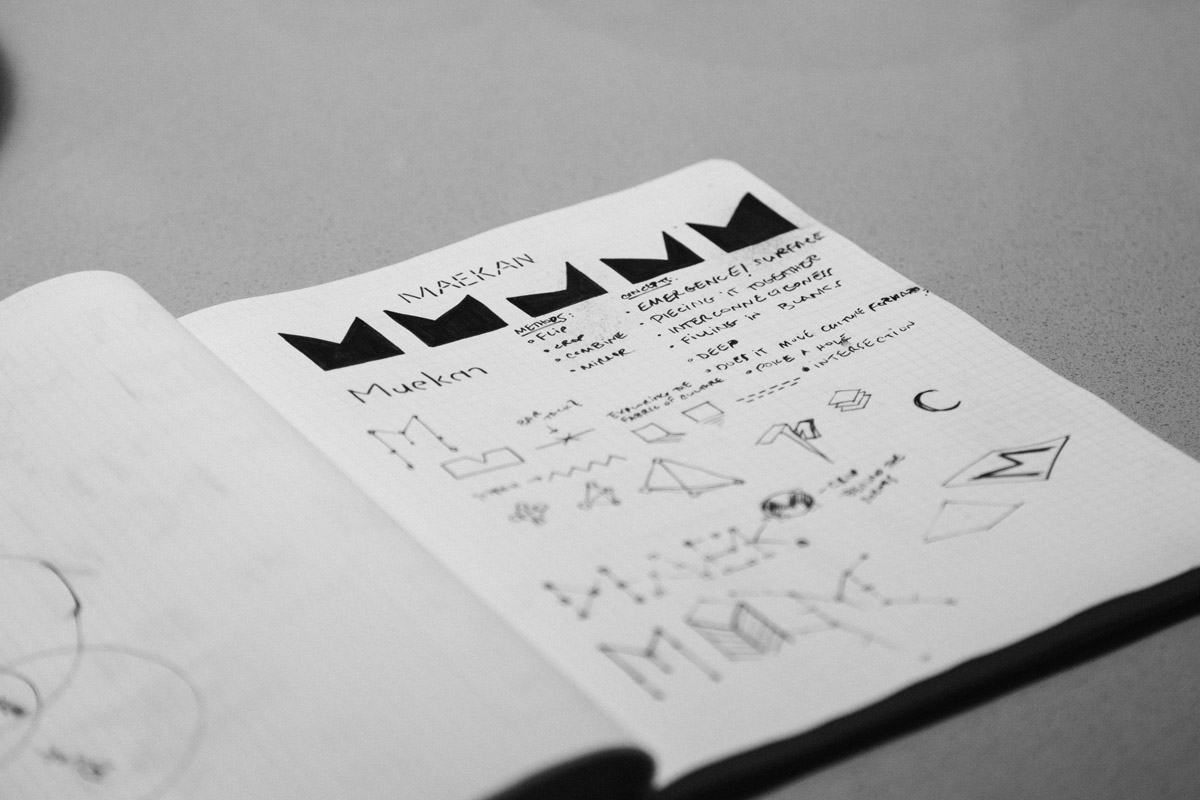 MAEKAN
METHODS:
• FLIP
• CROP
• COMBINE
• MIRROR
CONCEPTS:
• EMERGENCE / SURFACE
• PIECING IT TOGETHER
• INTERCONNECTEDNESS
• FILLING IN BLANKS
• DEEP
• DOES IT MOVE CULTURE FORWARD?
• POKE A HOLE
• INTERSECTION
Maekan
M
EXPLORING THE
FABRIC OF CULTURE
C
M
MAEK
M